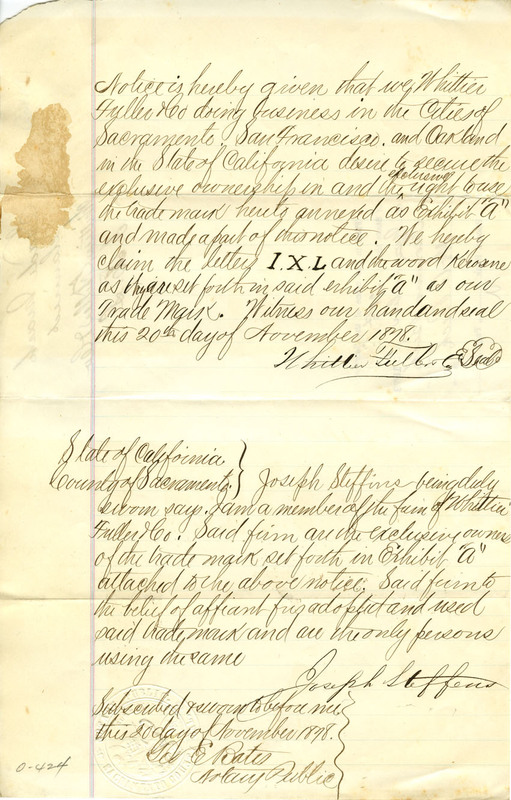 Notice is hereby given that we, Whittier
Fuller & Co doing business in the Cities of
Sacramento, San Francisco, and Oakland
in the State of California desire to secure the
exclusive ownership in and the exclusive right to use
the trade mark hereto annexed as Exhibit "A"
and made a part of this notice. We hereby
claim the letters I.X.L and the word Kerosene
as they are set forth in said exhibit "a" as our
Trade Mark. Witness our hand and seal
this 20th day of November 1878.
Whittier Fuller & Co Seal
State of California
County of Sacramento } Joseph Steffins being duly
sworn say. I am a member of the firm of Whittier
Fuller & Co. Said firm are the exclusive owners
of the trade mark set forth in Exhibit "A"
attached to the above notice. Said firm to
the belief of affiant first adopted and used
said trade mark and are the only persons
using the same
Joseph Steffens
Subscribed & sworn to before me
this 20 day of November 1878.
Geo E Bates
Notary Public
0-424